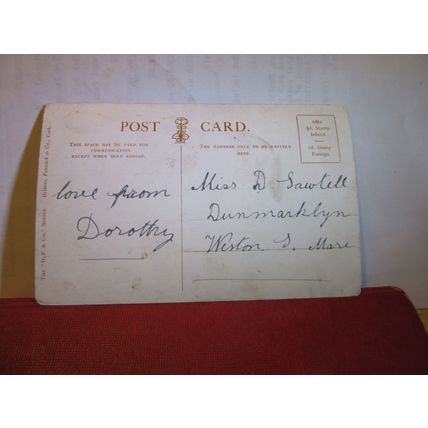 POST CARD.
THIS SPACE MAY BE USED FOR
COMMUNICATION.
EXCEPT WHEN SENT ABROAD.
THE ADDRESS ONLY TO BE WRITTEN
HERE.
Affix
½d. Stamp
Inland.
1d. Stamp
Foreign.
love from
Dorothy
Miss D Sawtell
Dunmarklyn
Weston S. Mare
THE "D. F. & Co." SERIES.